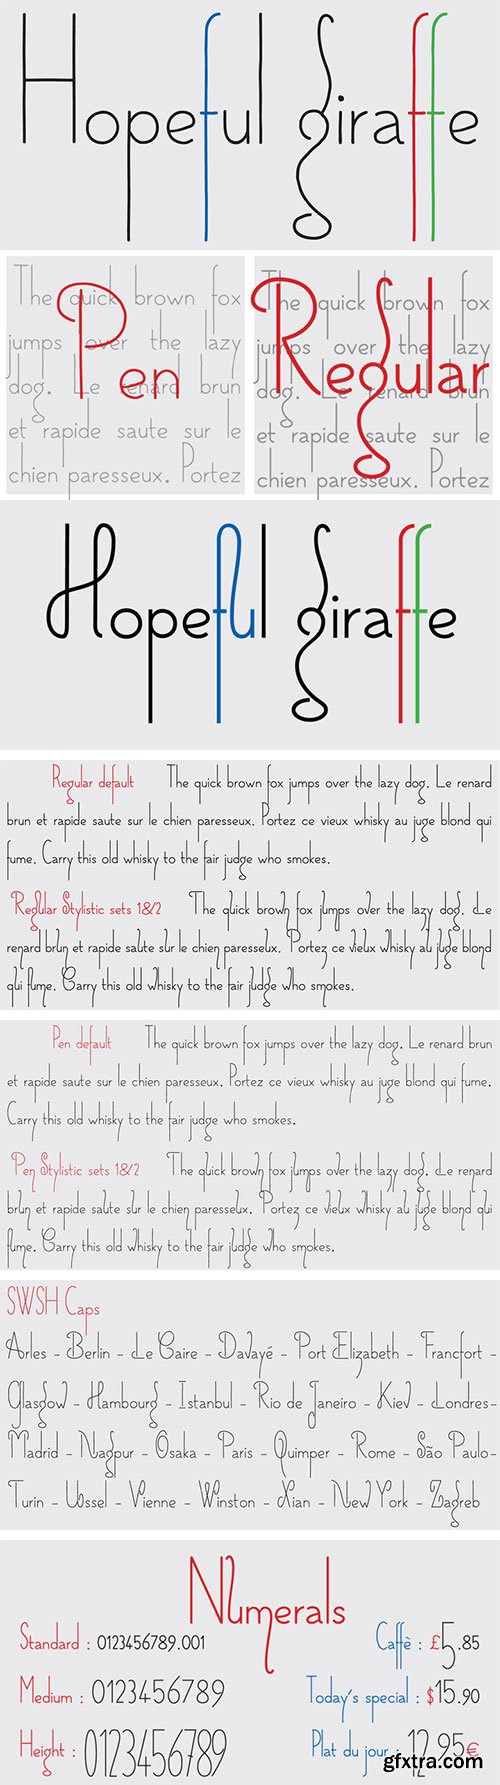 Hopeful giraffe
The quick brown fox
jumps over the lazy
dog. Le renard brun
et rapide saute sur le
chien paresseux. Portez
Pen
The quick brown fox
jumps over the lazy
dog. Le renard brun
et rapide saute sur le
chien paresseux. Portez
Regular
Hopeful giraffe
Regular default The quick brown fox jumps over the lazy dog. Le renard
brun et rapide saute sur le chien paresseux. Portez ce vieux whisky au juge blond qui
fume. Carry this old whisky to the fair judge who smokes.
Regular Stylistic sets 1&2 The quick brown fox jumps over the lazy dog. Le
renard brun et rapide saute sur le chien paresseux. Portez ce vieux whisky au juge blond
qui fume. Carry this old whisky to the fair judge who smokes.
Pen default The quick brown fox jumps over the lazy dog. Le renard brun
et rapide saute sur le chien paresseux. Portez ce vieux whisky au juge blond qui fume.
Carry this old whisky to the fair judge who smokes.
Pen Stylistic sets 1&2 The quick brown fox jumps over the lazy dog. Le renard
brun et rapide saute sur le chien paresseux. Portez ce vieux whisky au juge blond qui
fume. Carry this old whisky to the fair judge who smokes.
SWSH Caps
Arles - Berlin - Le Caire - Davayé - Port Elizabeth - Francfort -
Glasgow - Hambourg - Istanbul - Rio de Janeiro - Kiev - Londres-
Madrid - Nagpur - Osaka - Paris - Quimper - Rome - São Paulo-
Turin - Ussel - Vienne - Winston - Xian - New York - Zagreb
Numerals
Standard : 0123456789.001 Caffè : £5.85
Medium : 0123456789 Today's special : $15.90
Height : 0123456789 Plat du jour : 12.95€
gfxtra.com